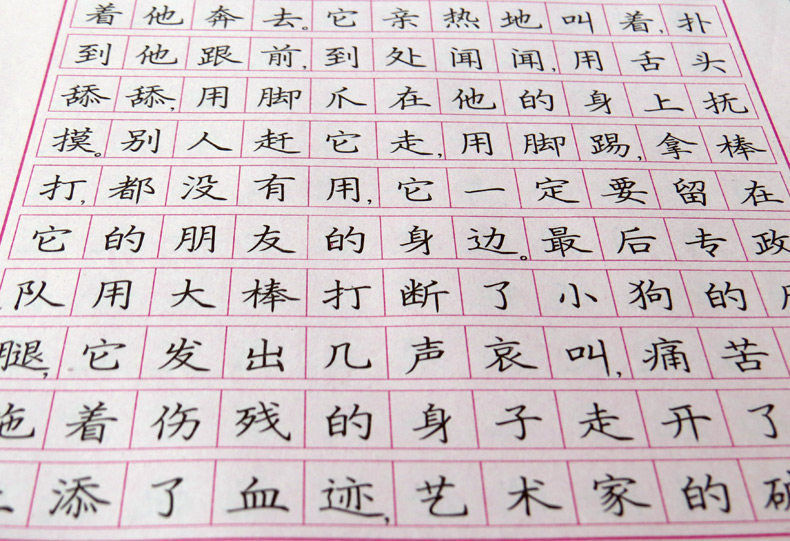 着他奔去。它亲热地叫着,扑
到他跟前,到处闻闻,用舌头
舔舔,用脚爪在他的身上抚
摸。别人赶它走,用脚踢,拿棒
打,都没有用,它一定要留在
它的朋友的身边。最后专政
队用大棒打断了小狗的
腿,它发出几声哀叫,痛苦
拖着伤残的身子走开了
添了血迹,艺术家的